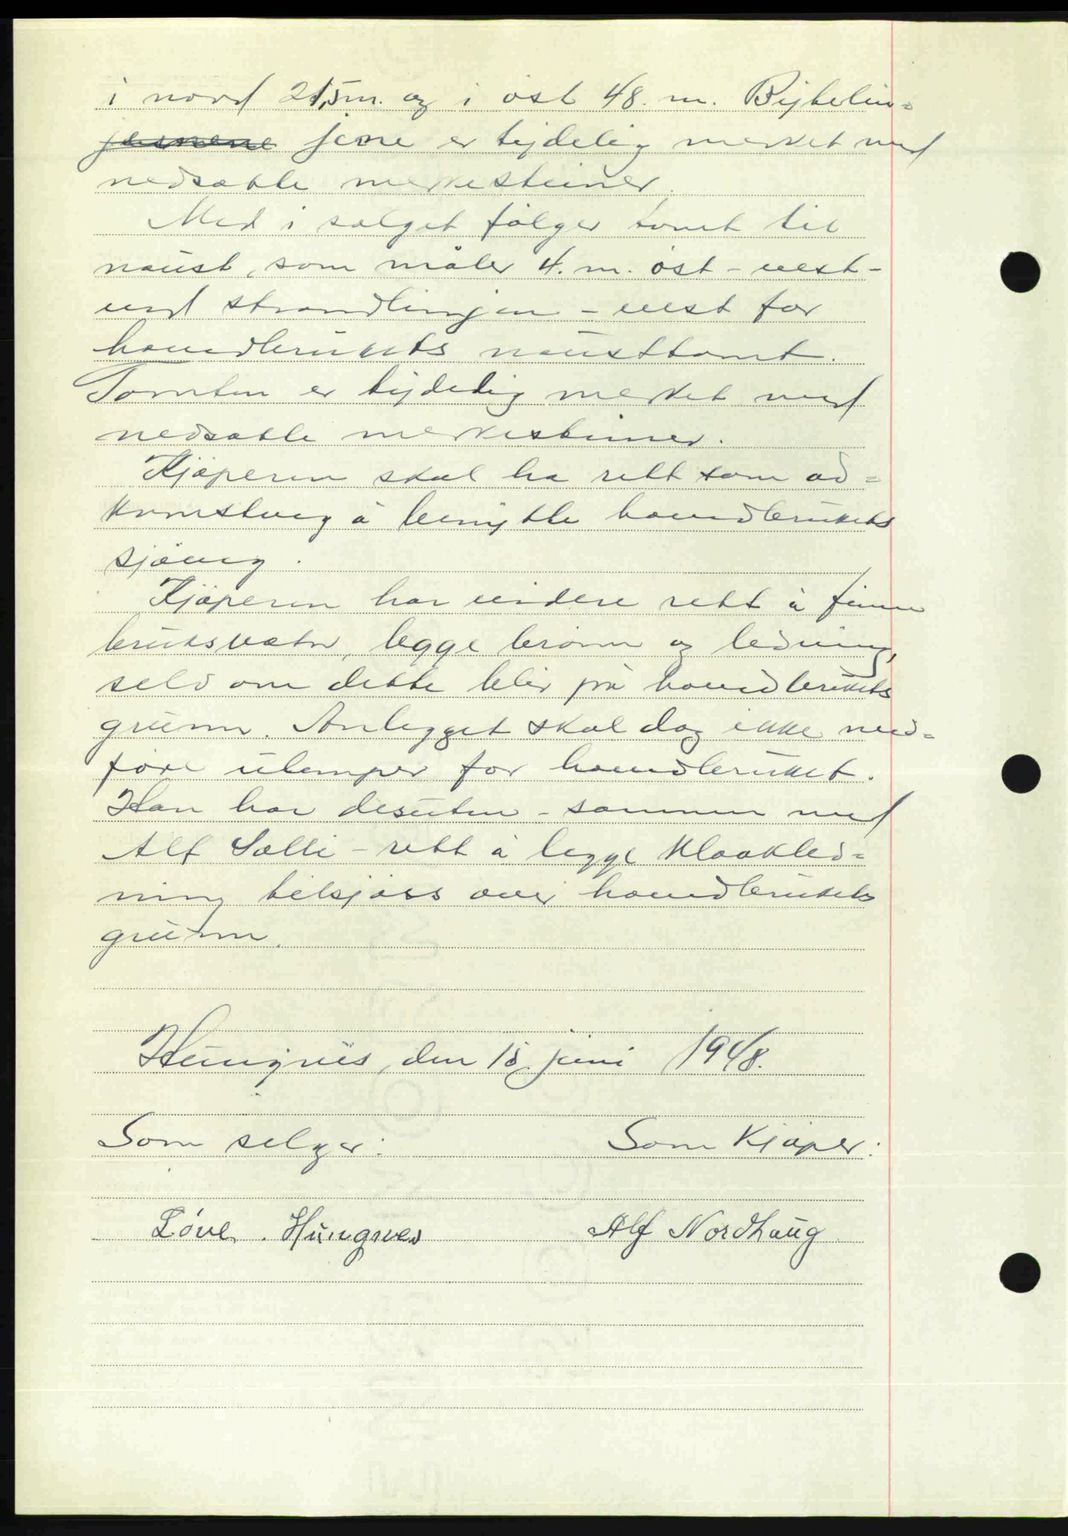 i nord 21,5 m. og i øst 48. m. Bytelin=
jernene jene er tydelig merket med
nedsatte merkesteiner.
Med i salget følger tomt til
naust, som måler 4. m. øst - vest -
ved strandlinjen - vest for
hovedbrukets nausttomt.
Tomten er tydelig merket med
nedsatte merkesteiner.
Kjøperen skal ha rett som ad=
komstveg å benytte hovedbrukets
sjøveg.
Kjøperen har videre rett å finne
bruksvatn, legge brønn og ledning,
selv om dette blir på hovedbrukets
grunn. Anlegget skal dog ikke med=
føre ulemper for hovedbruket.
Han har desuten - sammen med
Alf Sætli - rett å legge kloakkled=
ning tilsjøss over hovedbrukets
grunn.
Hungnes, den 15 juni 1948.
Som selger: Som kjøper:
Løve. Hungnes Alf Nordhaug